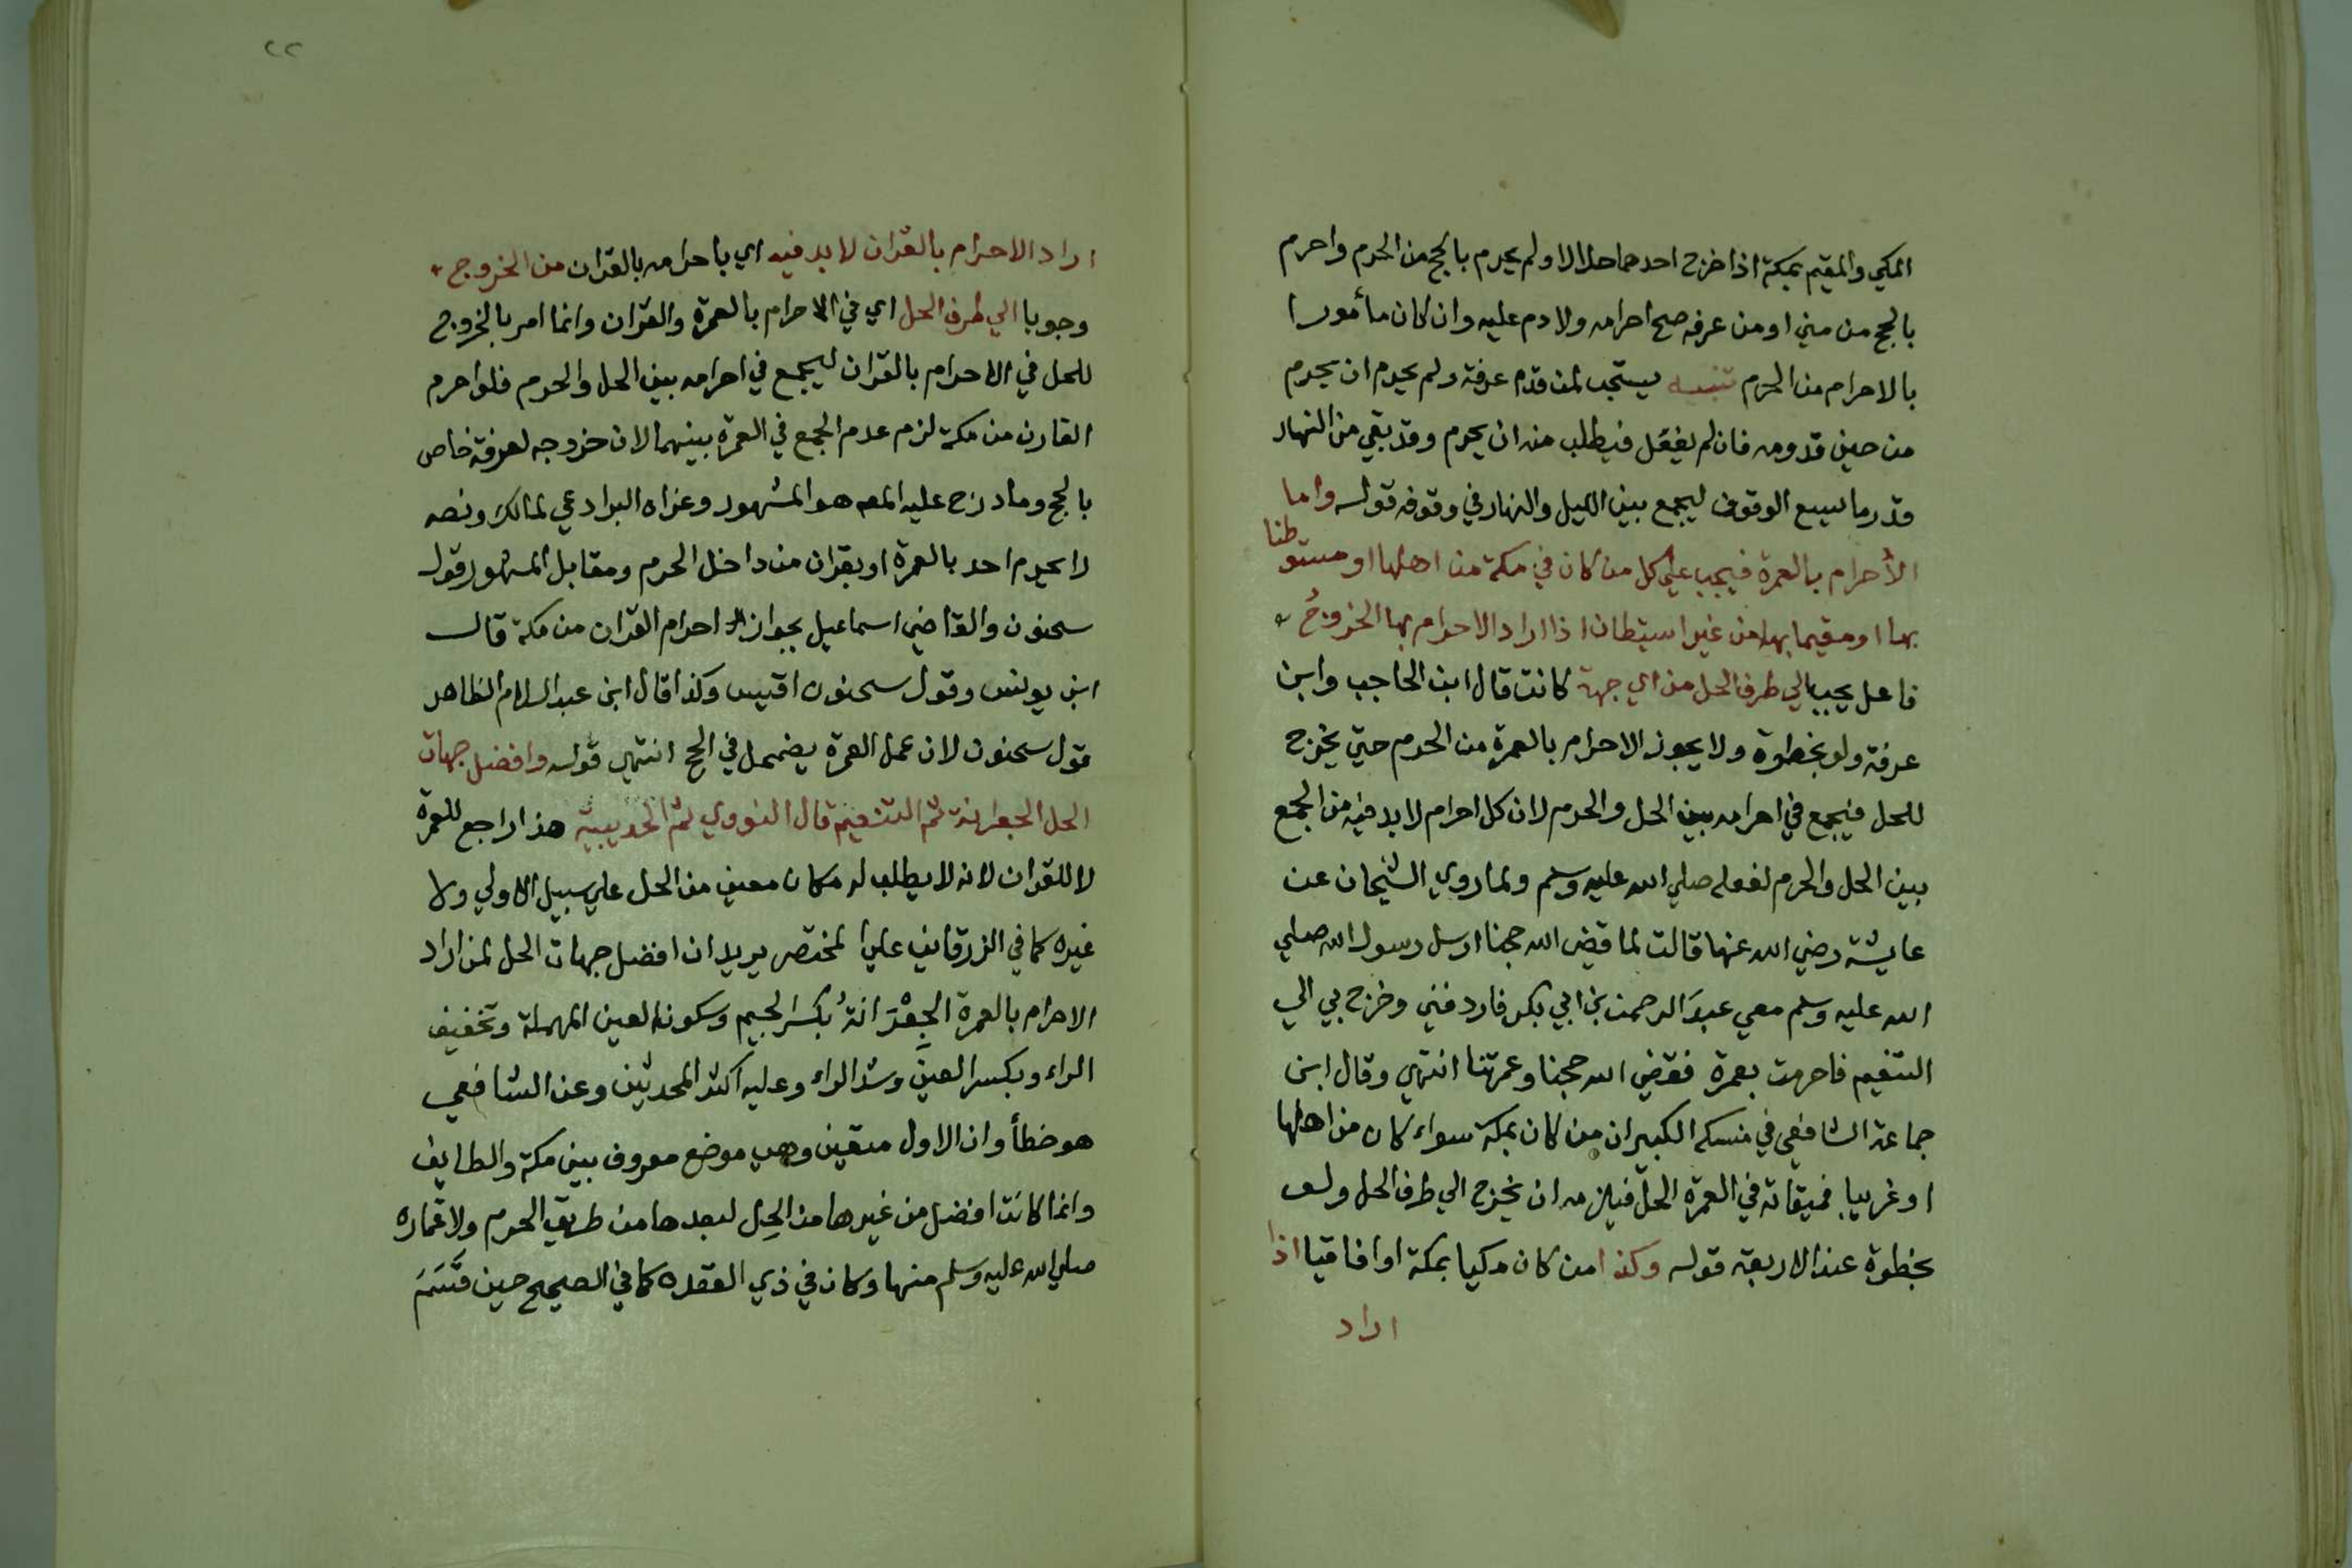 المكي والمقيم بمكة اذا خرج احدهما حلالا ولم يحرم بالحج من الحرم واحرم
بالحج من مني او من عرفه صح احرامه ولا دم عليه وان كان مأمورا
بالاحرام من الحرم تنبيه يستحب لمن قدم عرفة ولم يحرم ان يحرم
من حين قدومه فان لم يفعل فيطلب منه ان يحرم وقد بقي من النهار
قدر ما يسع الوقوف ليجمع بين الليل والنهار في وقوفه قوله واما
الأحرام بالعمرة فيجب علي كل من كان في مكة من اهلها او مستوطنا
بها او مقيما بها من غير استيطان اذا اراد الاحرام بها الخروجُ
فاعل يجب الي طرف الحل من اي جهة كانت قال ابن الحاجب وابن
عرفة ولو بخطوة ولا يجوز الاحرام بالعمرة من الحرم حتي يخرج
للحل فيجمع في احرامه بين الحل والحرم لان كل احرام لا بد فيه من الجمع
بين الحل والحرم لفعله صلي الله عليه وسلم ولما روي الشيخان عن
عايشة رضي الله عنها قالت لما قضي الله حجنا ارسل رسول الله صلي
الله عليه وسلم معي عبدَ الرحمن بن ابي بكر فاردفني وخرج بي الي
التنعيم فاحرمت بعمرة فقضي الله حجنا وعمرتنا انتهي وقال ابن
جماعة الشافعي في منسكه الكبير ان من كان بمكة سواء كان من اهلها
او غريبا فميقاته في العمرة الحلّ فيلزمه ان يخرج الي طرف الحل ولو
بخطوة عند الاربعة قوله وكذا من كان مكيا بمكة او افاقيا اذا
اراد
٢٢
اراد الاحرام بالقران لا بد فيه اي باحرامه بالقران من الخروج
وجوبا الي طرف الحل اي في الاحرام بالعمرة والقران وانما امر بالخروج
للحل في الاحرام بالقران ليجمع في احرامه بين الحل والحرم فلو احرم
القارن من مكة لزم عدم الجمع في العمرة بينهما لان خروجه لعرفة خاص
بالحج وما درج عليه المص هو المشهور وعزاه البرادعي لمالك ونصه
لا يحرم احد بالعمرة او بقران من داخل الحرم ومقابل المشهور قول
سحنون والقاضي اسماعيل بجواز احرام القران من مكة قال
ابن يونس وقول سحنون اقيس وكذا قال ابن عبد السلام الظاهر
قول سحنون لان عمل العمرة يضمحل في الحج انتهي قوله وافضل جهات
الحل الجعرانة ثم التنعيم قال النووي ثم الحديبية هذا راجع للعمرة
لا للقران لانه لا يطلب له مكان معين من الحل علي سبيل الاولي ولا
غيره كما في الزرقاني علي المختصر يريد ان افضل جهات الحل لمن اراد
الاحرام بالعمرة الجِعْرَانةُ بكسر الجيم وسكون العين المهملة وتخفيف
الراء وبكسر العين وشد الراء وعليه اكثر المحدثين وعن الشافعي
هو خطأ وان الاول متعين وهي موضع معروف بين مكة والطايف
وانما كانت افضل من غيرها من الحِل لبعدها من طريق الحرم ولاعتماره
صلي الله عليه وسلم منها وكان في ذي القعده كما في الصحيح حين قَسَمَ